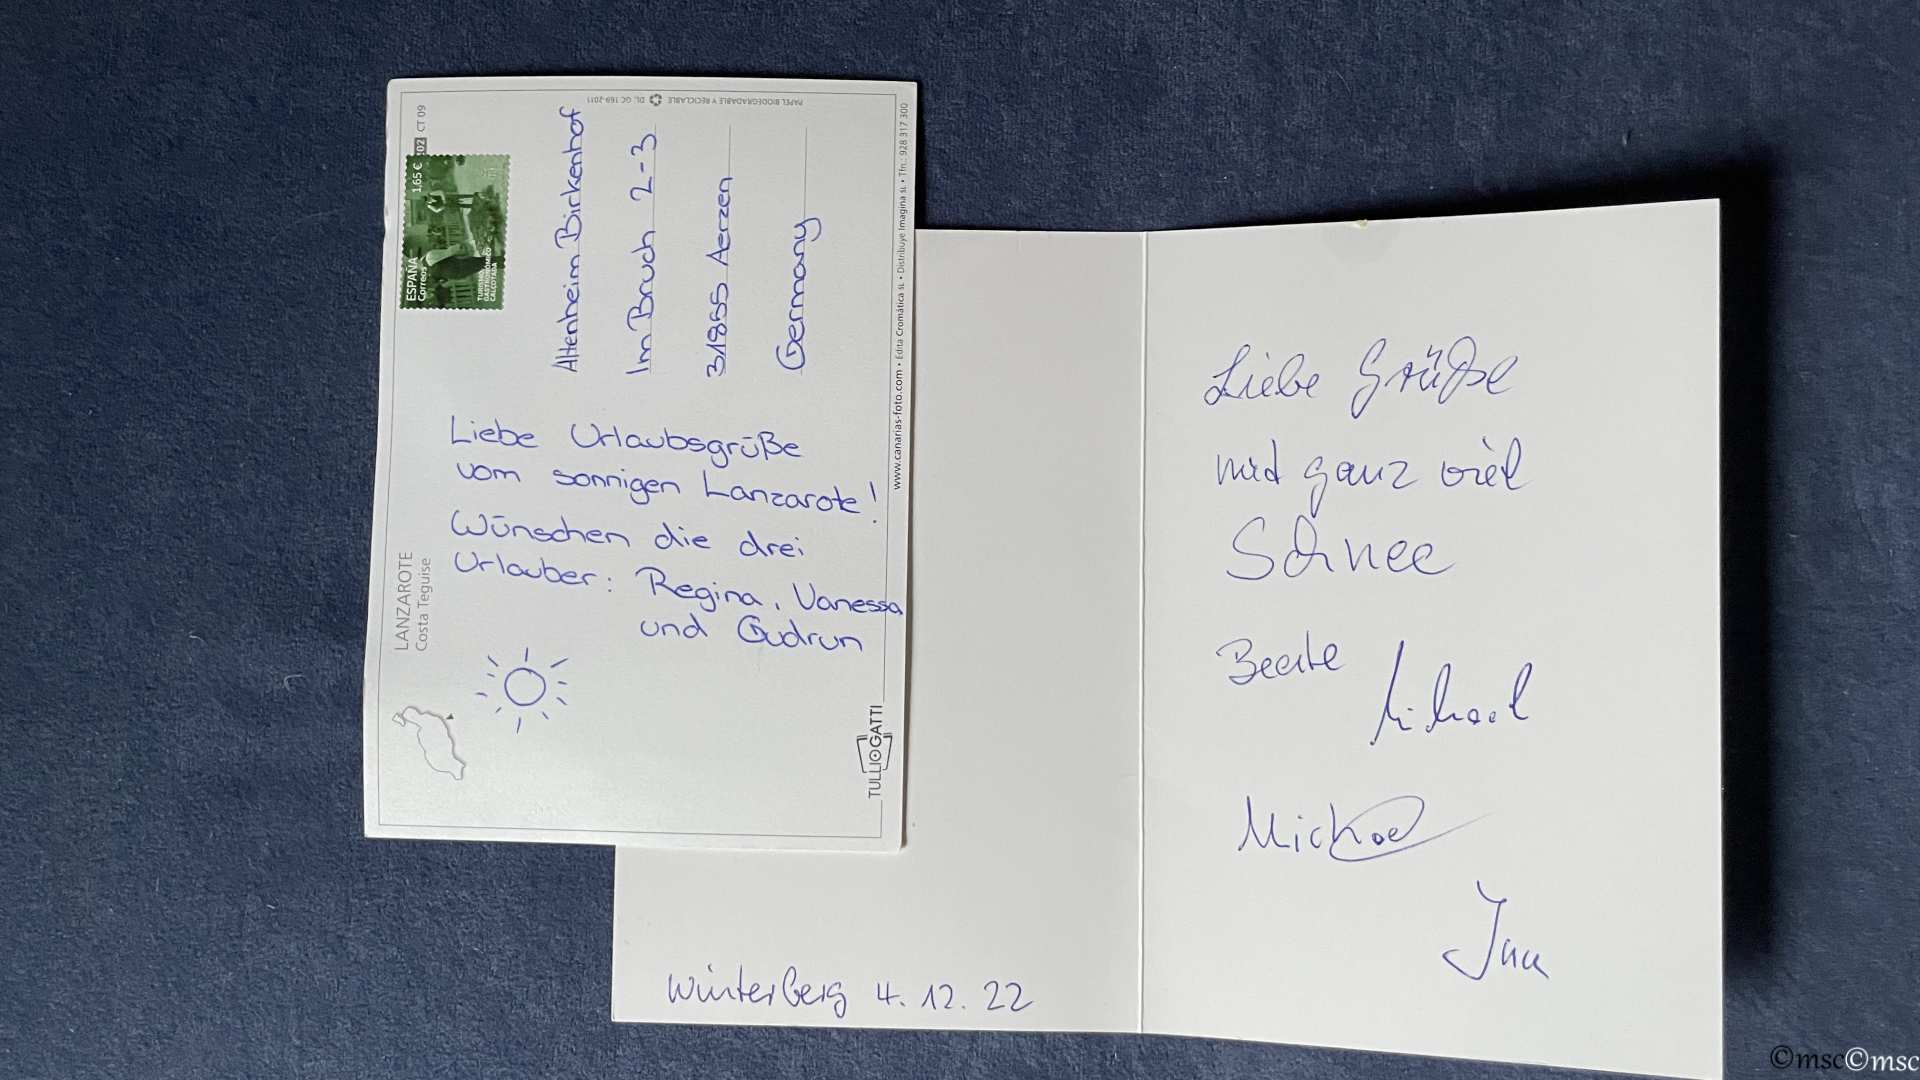 LANZAROTE
Costa Teguise
Liebe Urlaubsgrüße
vom sonnigen Lanzarote!
Wünschen die drei
Urlauber: Regina, Vanessa
und Gudrun
TULLIOGATTI
ESPAÑA
Correos
1,65 €
TURISMO
GASTRONÓMICO
CALÇOTADA
CT 09
Altenheim Birkenhof
Im Bruch 2-3
31855 Aerzen
Germany
PAPEL BIODEGRADABLE Y RECICLABLE DL. GC 169-2011
www.canarias-foto.com • Edita Cromática SL • Distribuye Imagina SL • Tfn.: 928 317 300
Winterberg 4.12.22
Liebe Grüße
mit ganz viel
Schnee
Beate
Michael
Michael
Ina
©msc©msc